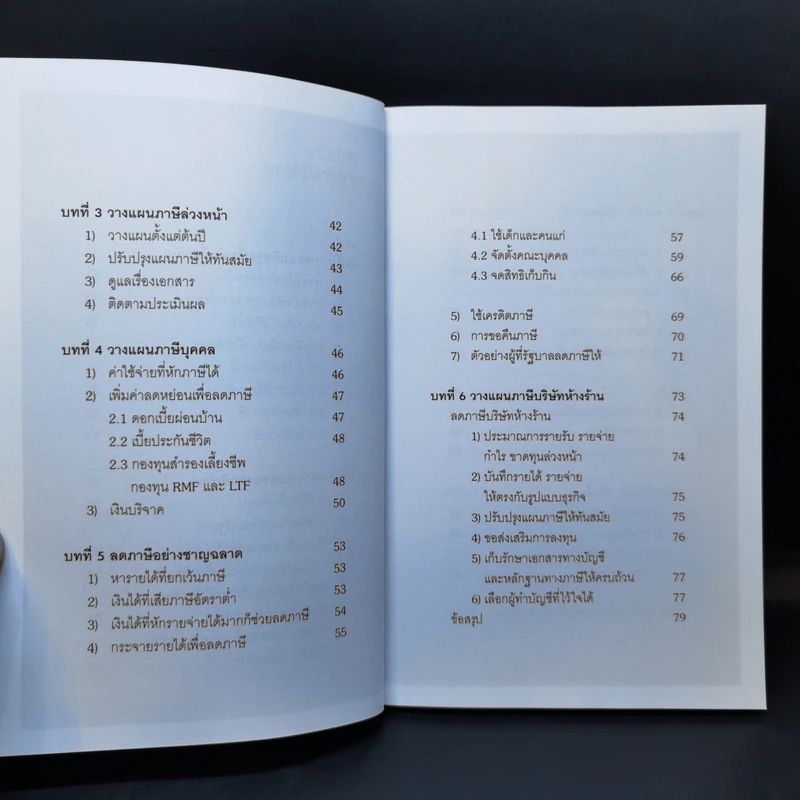 บทที่ 3 วางแผนภาษีล่วงหน้า 42
1) วางแผนตั้งแต่ต้นปี 42
2) ปรับปรุงแผนภาษีให้ทันสมัย 43
3) ดูแลเรื่องเอกสาร 44
4) ติดตามประเมินผล 45
บทที่ 4 วางแผนภาษีบุคคล 46
1) ค่าใช้จ่ายที่หักภาษีได้ 46
2) เพิ่มค่าลดหย่อนเพื่อลดภาษี 47
2.1 ดอกเบี้ยผ่อนบ้าน 47
2.2 เบี้ยประกันชีวิต 48
2.3 กองทุนสำรองเลี้ยงชีพ
กองทุน RMF และ LTF 48
3) เงินบริจาค 50
บทที่ 5 ลดภาษีอย่างชาญฉลาด 53
1) หารายได้ที่ยกเว้นภาษี 53
2) เงินได้ที่เสียภาษีอัตราต่ำ 53
3) เงินได้ที่หักรายจ่ายได้มากก็ช่วยลดภาษี 54
4) กระจายรายได้เพื่อลดภาษี 55
4.1 ใช้เด็กและคนแก่ 57
4.2 จัดตั้งคณะบุคคล 59
4.3 จดสิทธิเก็บกิน 66
5) ใช้เครดิตภาษี 69
6) การขอคืนภาษี 70
7) ตัวอย่างผู้ที่รัฐบาลลดภาษีให้ 71
บทที่ 6 วางแผนภาษีบริษัทห้างร้าน 73
ลดภาษีบริษัทห้างร้าน 74
1) ประมาณการรายรับ รายจ่าย
กำไร ขาดทุนล่วงหน้า 74
2) บันทึกรายได้ รายจ่าย
ให้ตรงกับรูปแบบธุรกิจ 75
3) ปรับปรุงแผนภาษีให้ทันสมัย 75
4) ขอส่งเสริมการลงทุน 76
5) เก็บรักษาเอกสารทางบัญชี
และหลักฐานทางภาษีให้ครบถ้วน 77
6) เลือกผู้ทำบัญชีที่ไว้ใจได้ 77
ข้อสรุป 79